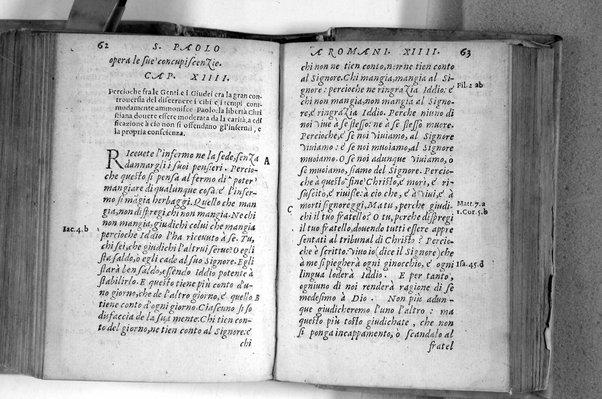 62 S. PAOLO
opera le sue concupiscenzie.
CAP. XIIII.
Percioche fra le Genti, e i Giudei era la gran con
trouersia del discernere i cibi e i tempi com
modamente ammonisce Paolo, la libertà Chri
stiana douere essere moderata da la carità, a edi
ficazione à ciò non si offendano gl'infermi, e
la propria conscienza.
RIceuete l'infermo ne la fede, senza A
dannargli i suoi pensieri. Percio-
che questo si pensa al fermo di poter
mangiare di qualunque cosa: è l'infer-
mo si mãgia herbaggi. Quello che man
gia, non dispregi chi non mangia. Ne chi
non mangia, giudichi colui che mangia
percioche Iddio l'ha riceuuto à se. Tu,
Iac. 4. b chi sei, che giudichi l'altrui seruo? O egli
sta saldo, o egli cade al suo Signore. Egli
stará ben saldo, essendo Iddio potente à
stabilirlo. E questo tiene più conto d'u-
no giorno, che de l'altro giorno, è quello B
tiene conto d'ogni giorno. Ciascuno si so
disfaccia de la sua mente. Chi tien con-
to del giorno, ne tien conto al Signore: è
chi
A ROMANI. XIIII. 63
chi non ne tien conto, non ne tien conto
al Signore. Chi mangia, mangia al Si-
gnore: percioche ne ringrazia Iddio: è Fil. 2 ab
chi non mangia, non mangia al Signo-
re, è ringrazia Iddio. Perche niuno di
noi viue à se stesso: ne à se stesso muore.
Percioche, è se noi viuiamo, al Signore
viuiamo: è se noi muoiamo, al Signore
muoiamo. O se noi adunque viuiamo, ò
se muoiamo, siamo del Signore. Percio-
che à questo fine Christo, è mori, è ri-
suscitò, è riuisse: à ciò che, è à viui, è à
morti signoreggi, Ma tu, perche giudi- Matt. 7. a
C chi il tuo fratello? O tu, perche dispregi 1. Cor. 5. b
il tuo fratello, douendo tutti essere appre
sentati al tribunal di Christo? Percio-
che è scritto. Viuo io (dice il Signore) che
à me si piegherà ogni ginocchio, è ogni Isa. 45. d
lingua loderà Iddio. E per tanto,
ogniuno di noi renderà ragione di se
medesimo à Dio. Non più adun-
que giudicheremo l'uno l'altro: ma
questo più tosto giudichate, che non
si ponga incappamento, ò scandalo al
fratel